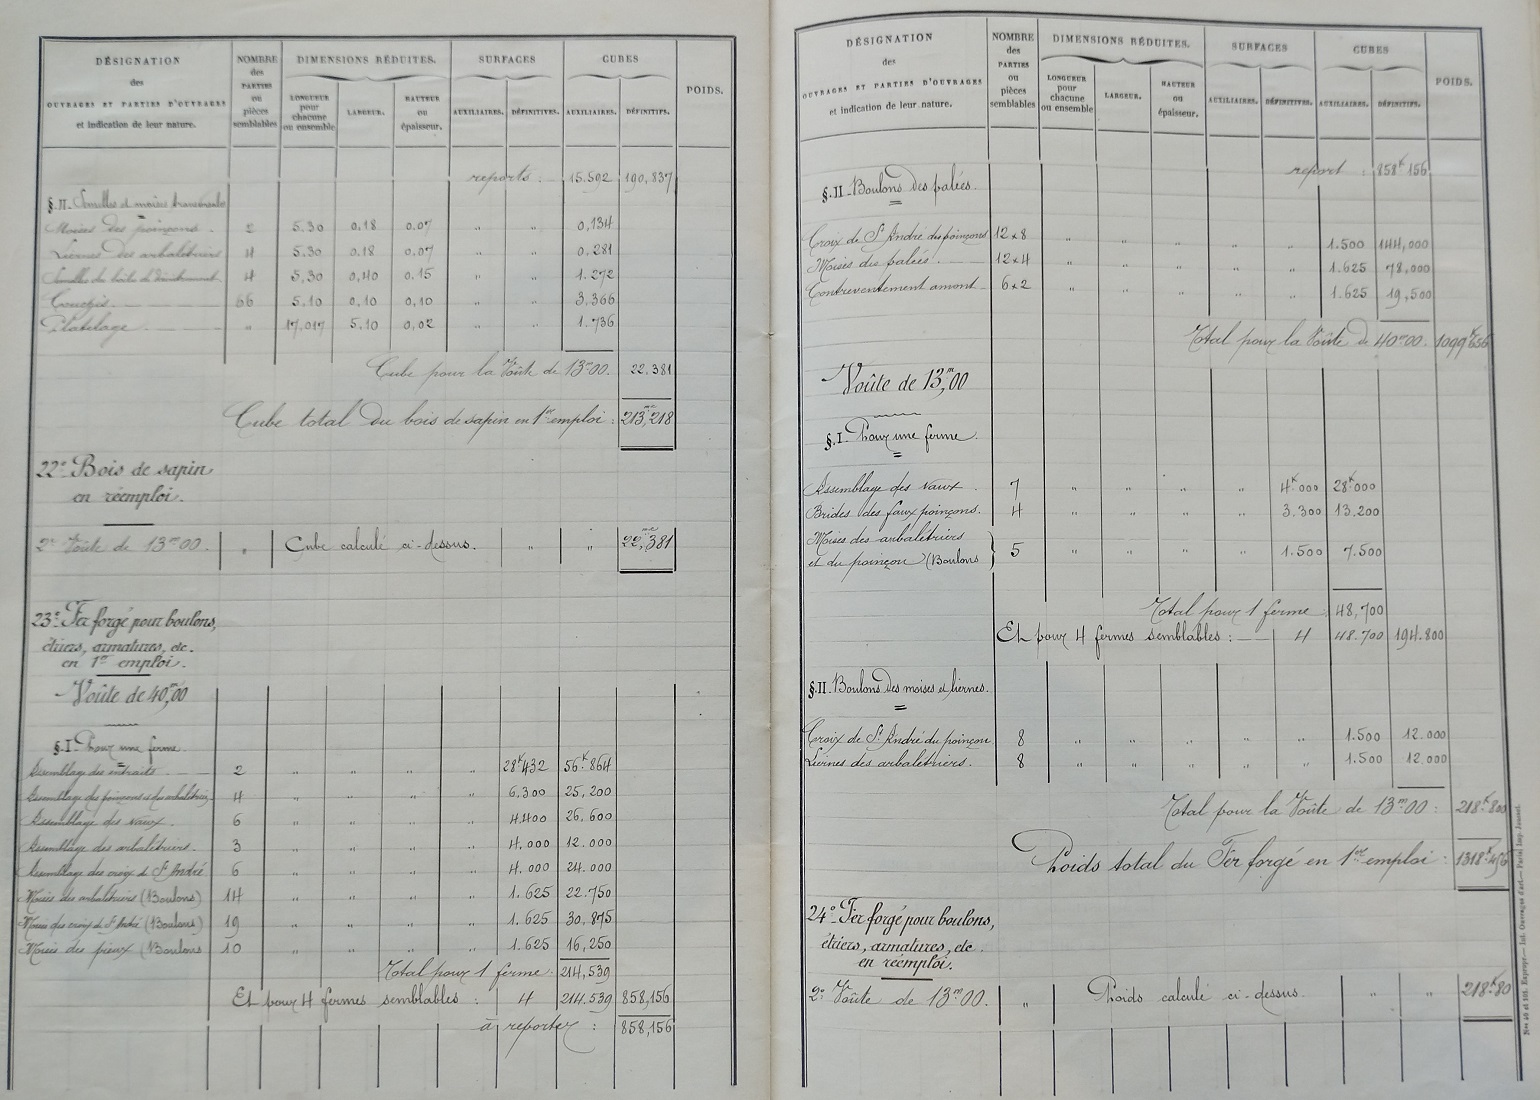 DÉSIGNATION
des
OUVRAGES ET PARTIES D'OUVRAGES
et indication de leur nature.
NOMBRE
des
PARTIES
ou
pièces
semblables
DIMENSIONS RÉDUITES.
LONGUEUR
pour
chacune
ou ensemble
LARGEUR.
HAUTEUR
ou
épaisseur.
SURFACES
AUXILIAIRES. DÉFINITIVES.
CUBES
AUXILIAIRES. DÉFINITIFS.
POIDS.
reports. 15.592 190,837
§.II. Semelles et moises transversales
Moises des poinçons. 2 5.30 0.18 0.07 " " 0,134
Liernes des arbalétriers 4 5.30 0.18 0.07 " " 0.281
Semelles des boîtes de décintrement 4 5,30 0,40 0.15 " " 1.272
Couchis. 66 5.10 0.10 0,10 " " 3.366
Platelage. " 17.017 5.10 0,02 " " 1.736
Cube pour la Voûte de 13m00. 22.381
Cube total du bois de sapin en 1er emploi : 213mc,218
22° Bois de sapin
en réemploi.
2e Voûte de 13m00. " Cube calculé ci-dessus. " " 22mc,381
23° Fer forgé pour boulons,
étriers, armatures, etc.
en 1er emploi.
Voûte de 40m,00
§.I. Pour une ferme.
Assemblage des entraits. 2 " " " " 28k432 56k.864
Assemblage des poinçons et des arbalétriers 4 " " " " 6.300 25,200
Assemblage des vaux. 6 " " " " 4.400 26.600
Assemblage des arbalétriers. 3 " " " " 4.000 12.000
Assemblage des croix de St André 6 " " " " 4.000 24.000
Moises des arbalétriers (Boulons) 14 " " " " 1.625 22.750
Moises des croix de St André (Boulons) 19 " " " " 1.625 30.875
Moises des pieux (Boulons 10 " " " " 1.625 16,250
Total pour 1 ferme. 214,539
Et pour 4 fermes semblables : 4 214.539 858,156
à reporter : 858,156
DÉSIGNATION
des
OUVRAGES ET PARTIES D'OUVRAGES
et indication de leur nature.
NOMBRE
des
PARTIES
ou
pièces
semblables
DIMENSIONS RÉDUITES.
LONGUEUR
pour
chacune
ou ensemble
LARGEUR.
HAUTEUR
ou
épaisseur.
SURFACES
AUXILIAIRES. DÉFINITIVES.
CUBES
AUXILIAIRES. DÉFINITIFS.
POIDS.
report : 858k156
§.II. Boulons des palées.
Croix de St André des poinçons 12x8 " " " " " 1.500 144,000
Moises des palées. 12x4 " " " " " 1.625 78.000
Contreventement amont 6x2 " " " " " 1.625 19,500
Total pour la Voûte de 40m00. 1099k656
Voûte de 13,m00
§.I. Pour une ferme.
Assemblage des vaux. 7 " " " " 4k000 28k000
Brides des faux poinçons. 4 " " " " 3.300 13.200
Moises des arbalétriers
et du poinçon (Boulons } 5 " " " " 1.500 7.500
Total pour 1 ferme. 48,700
Et pour 4 fermes semblables : 4 48.700 194.800
§.II. Boulons des moises et liernes.
Croix de St André du poinçon 8 " " " " " 1.500 12.000
Liernes des arbalétriers. 8 " " " " " 1.500 12,000
Total pour la Voûte de 13m00 : 218k.800
Poids total du Fer forgé en 1er emploi : 1318k456
24° Fer forgé pour boulons,
étriers, armatures, etc
en réemploi.
2° Voûte de 13m00. " Poids calculé ci-dessus. " " 218k80